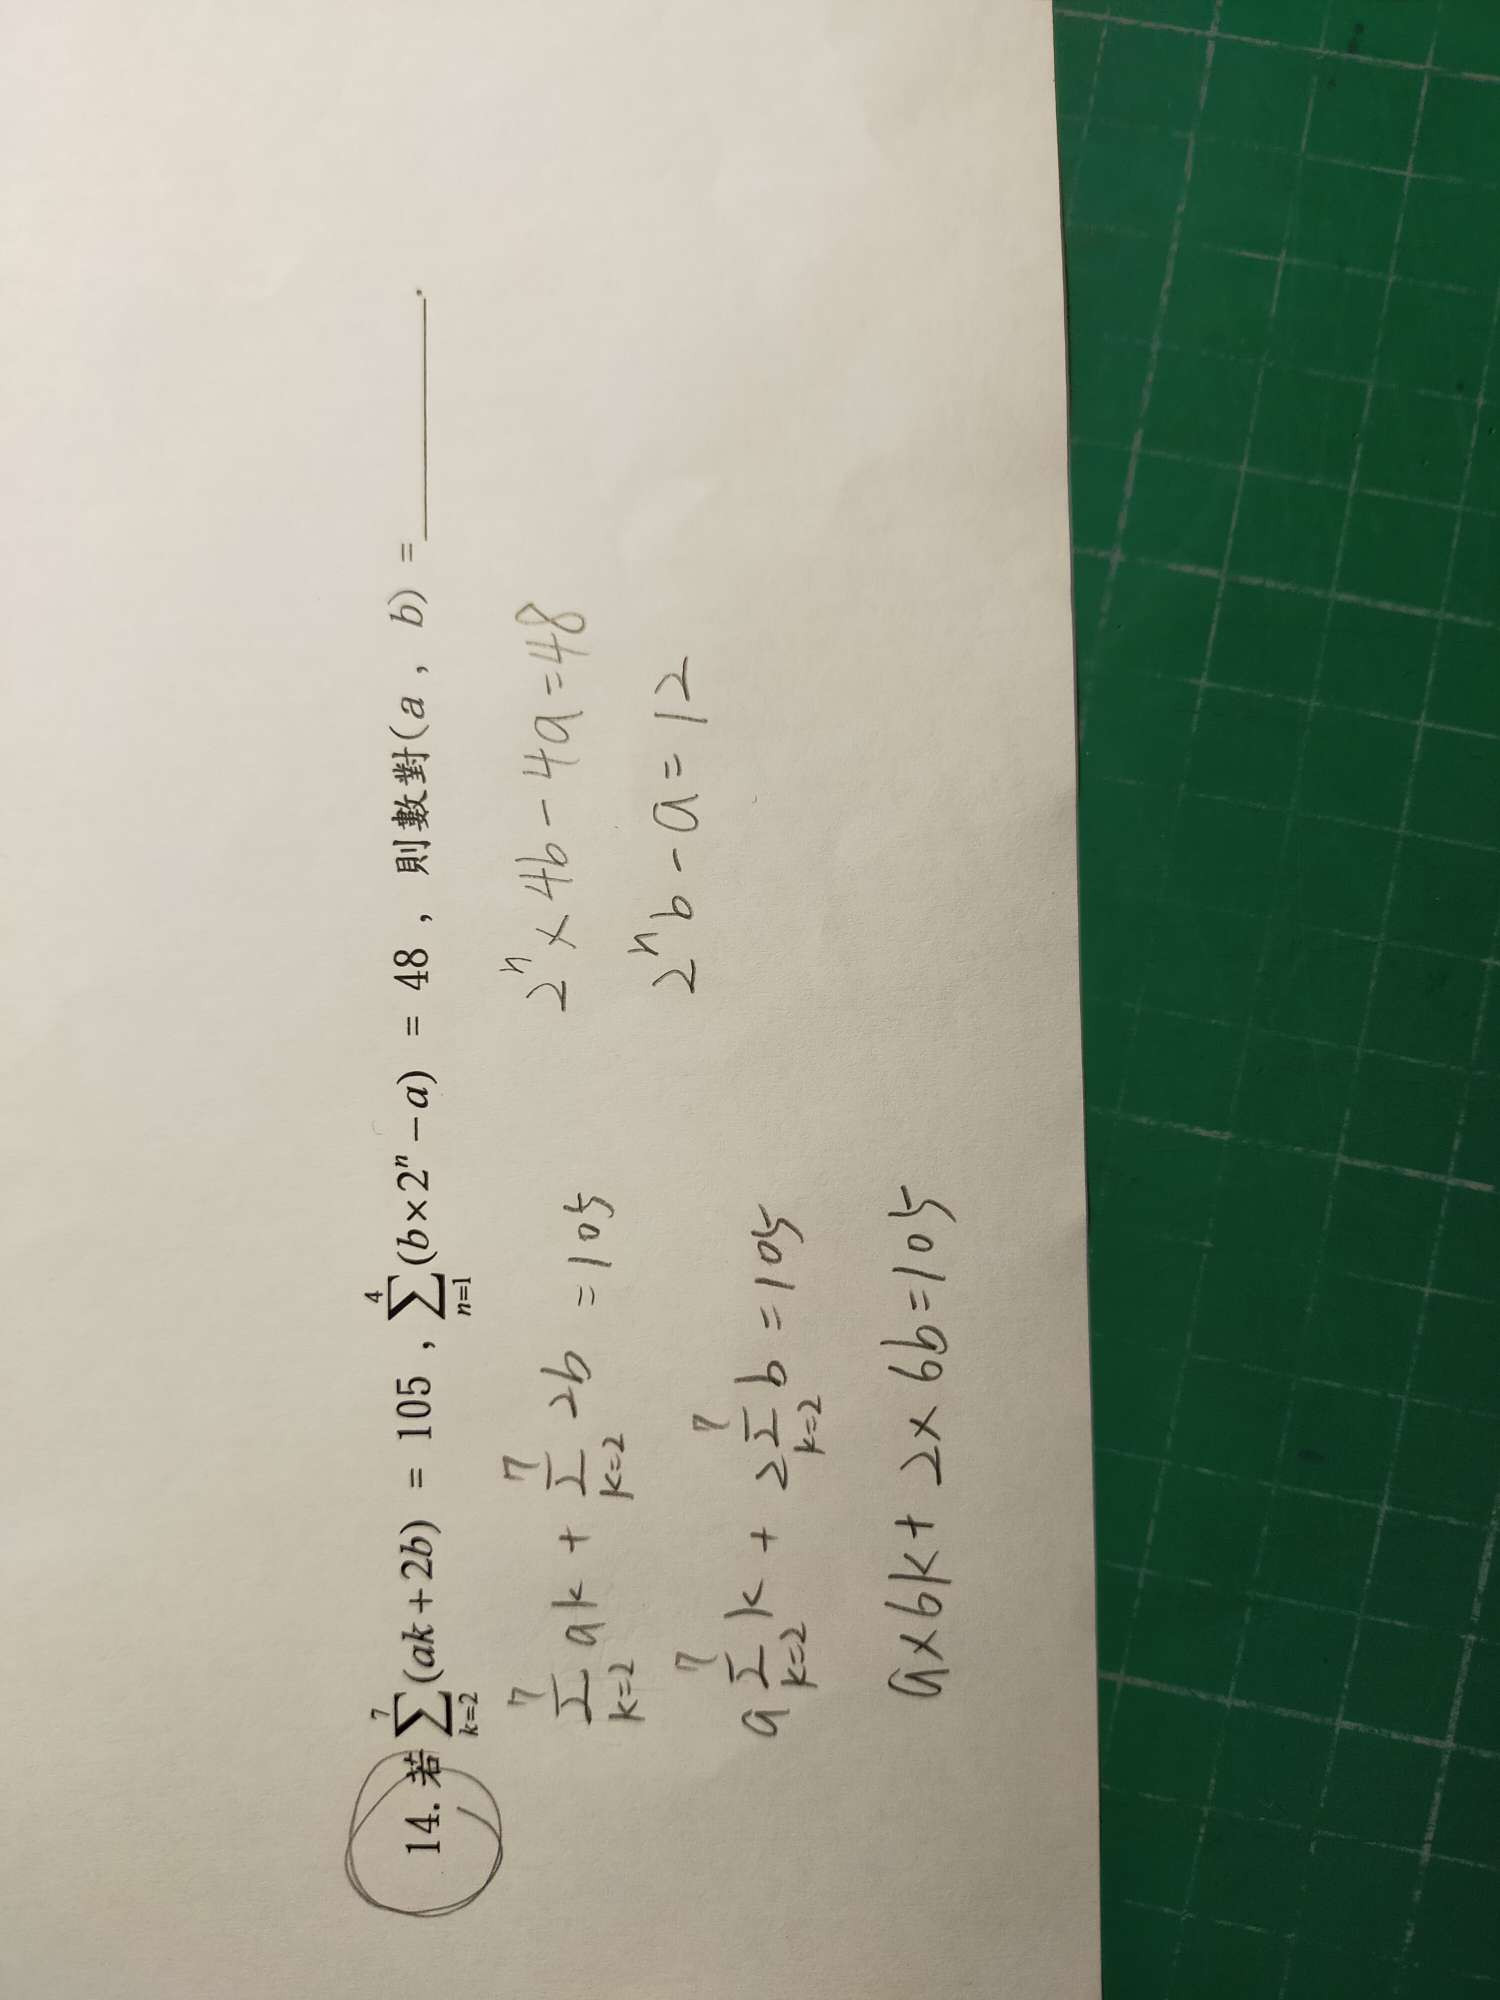 14. 若 \sum_{k=2}^{7}(ak+2b) = 105 , \sum_{n=1}^{4}(b×2^n－a) = 48 , 則數對(a , b) = ________.
\sum_{k=2}^{7} ak + \sum_{k=2}^{7} 2b = 105
2^n × 4b - 4a = 48
a \sum_{k=2}^{7} k + 2 \sum_{k=2}^{7} b = 105
2^n b - a = 12
a × 6k + 2 × 6b = 105